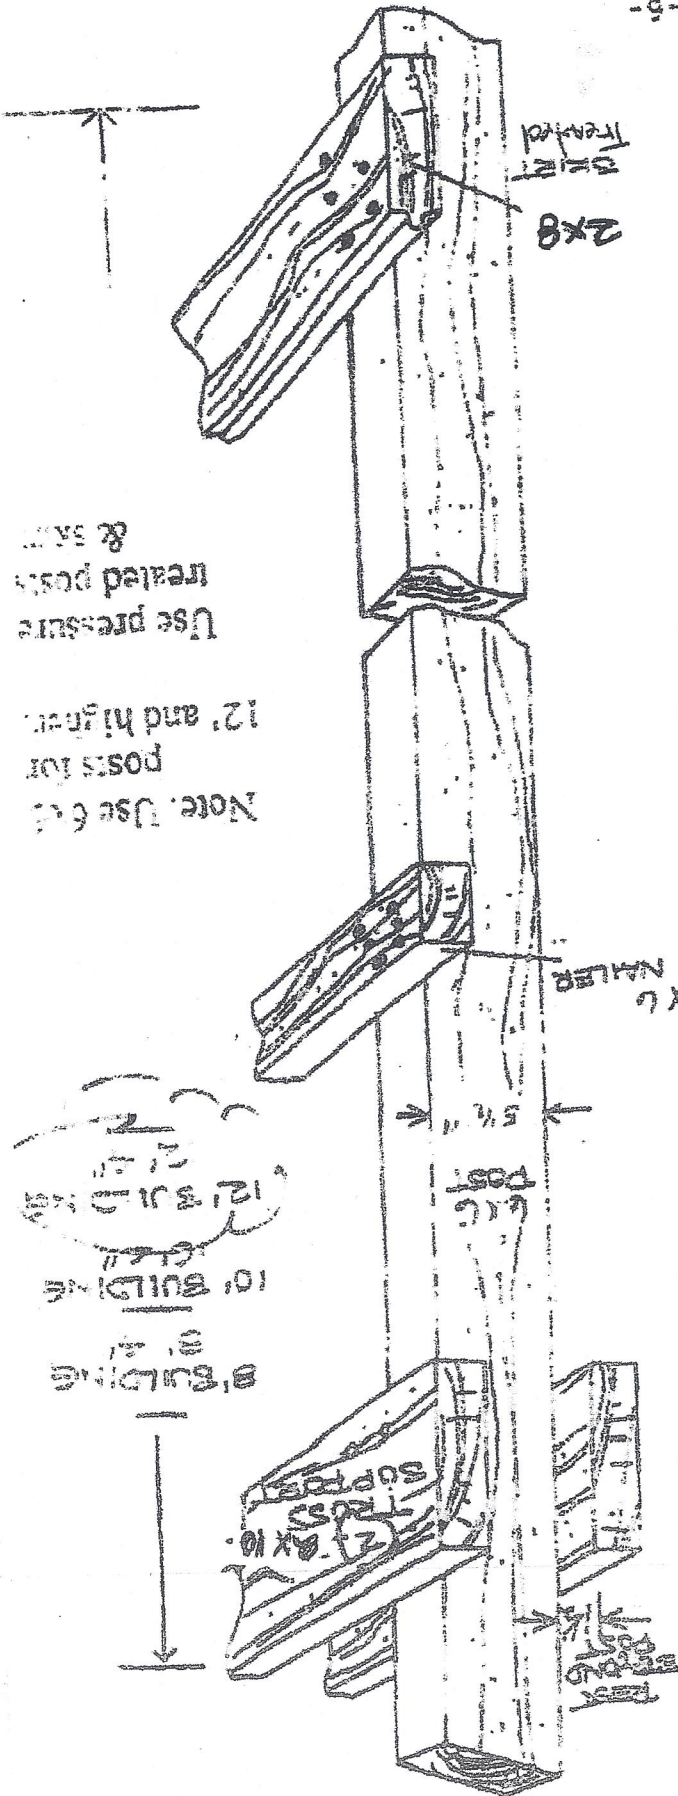 BEYOND
POST
(2) 2x10
TRUSS
SUPPORT
8' BUILDING
10' BUILDING
12' BUILDING
6x6
POST
5½"
x6
NAILER
Note. Use 6x6
posts for
12' and higher.
Use pressure
treated posts
&
2x8
SKIRT
Treated
-5-